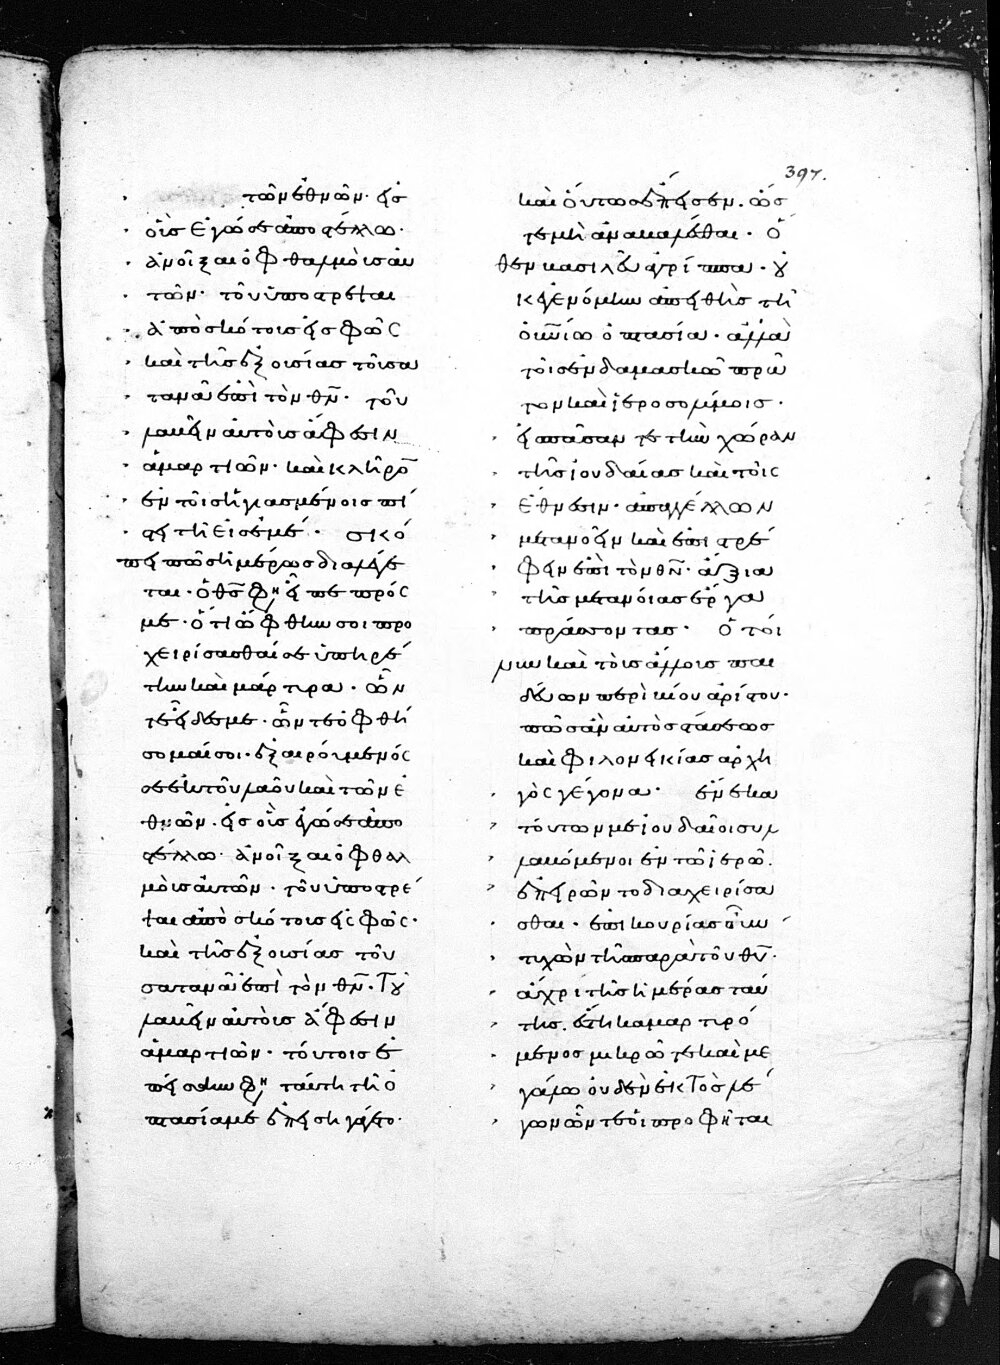 397.
τῶν ἐθνῶν· εἰς
οἷς ἐγώ σε ἀποστέλλω·
ἀνοῖξαι ὀφθαλμοὺς αὐ
τῶν· τοῦ ὑποστρέψαι
ἀπὸ σκότους εἰς φῶς
καὶ τῆς ἐξουσίας τοῦ σα
τανᾶ ἐπὶ τὸν θν̄· τοῦ
λαβεῖν αὐτοὺς ἄφεσιν
ἁμαρτιῶν· καὶ κλῆρον
ἐν τοῖς ἡγιασμένοις πί
στει τῇ εἰς ἐμέ· σκό
πει πῶς ἡμέρως διαλέγε
ται· ὁ θς̄ φη εἶπε πρός
με· ὅτι ὤφθην σοι προ
χειρίσασθαί σε ὑπηρέ
την καὶ μάρτυρα· ὧν
τε εἶδές με· ὧν τε ὀφθή
σομαί σοι· ἐξαιρούμενός
σε ἐκ τοῦ λαοῦ καὶ τῶν ἐ
θνῶν· εἰς οἷς ἐγώ σε ἀπο
στέλλω· ἀνοῖξαι ὀφθαλ
μοὺς αὐτῶν· τοῦ ὑποστρέ
ψαι ἀπὸ σκότους εἰς φῶς·
καὶ τῆς ἐξουσίας τοῦ
σατανᾶ ἐπὶ τὸν θν̄· τοῦ
λαβεῖν αὐτοὺς ἄφεσιν
ἁμαρτιῶν· τούτοις ἔ
πεισεν φη ταύτη τῇ ὀ
πτασία με
καὶ οὕτως ὥς
τε μὴ ἀναβαλέσθαι· ὅ
θεν βασιλεῦ ἀγρίππα· οὐ
κ ἐγενόμην ἀπειθὴς τῇ
οὐνίω ὀπτασία· ἀλλὰ
τοῖς ἐν δαμασκῶ πρῶ
τον καὶ ἱεροσολύμοις·
εἰς πᾶσαν τε τὴν χώραν
τῆς ἰουδαίας καὶ τοῖς
ἔθνεσιν· ἀπαγγέλλων
μετανοεῖν καὶ ἐπιστρέ
φειν ἐπὶ τὸν θν̄· ἄξια
τῆς μετανοίας ἔργα
πράσσοντας· ὁ τοί
νυν καὶ τοὺς ἄλλους παι
δεύων περὶ βίου ἀρίστου·
πῶς ἂν αὐτὸς στάσεως
καὶ φιλονεικίας ἀρχη
γὸς γέγονα· ἕνεκα
τούτων με ἰουδαῖοι συλ
λαβόμενοι ἐν τῶ ἱερῶ·
ἐπειρῶντο διαχειρίσα
σθαι· ἐπικουρίας οὖν
τυχὼν τῆς παρὰ τοῦ θῡ·
ἄχρι τῆς ἡμέρας ταύ
της· ἕστηκα μαρτυρό
μενος μικρῶ τε καὶ με
γάλω οὐδὲν ἐκτὸς λέ
γων ὧν τε οἱ προφῆται